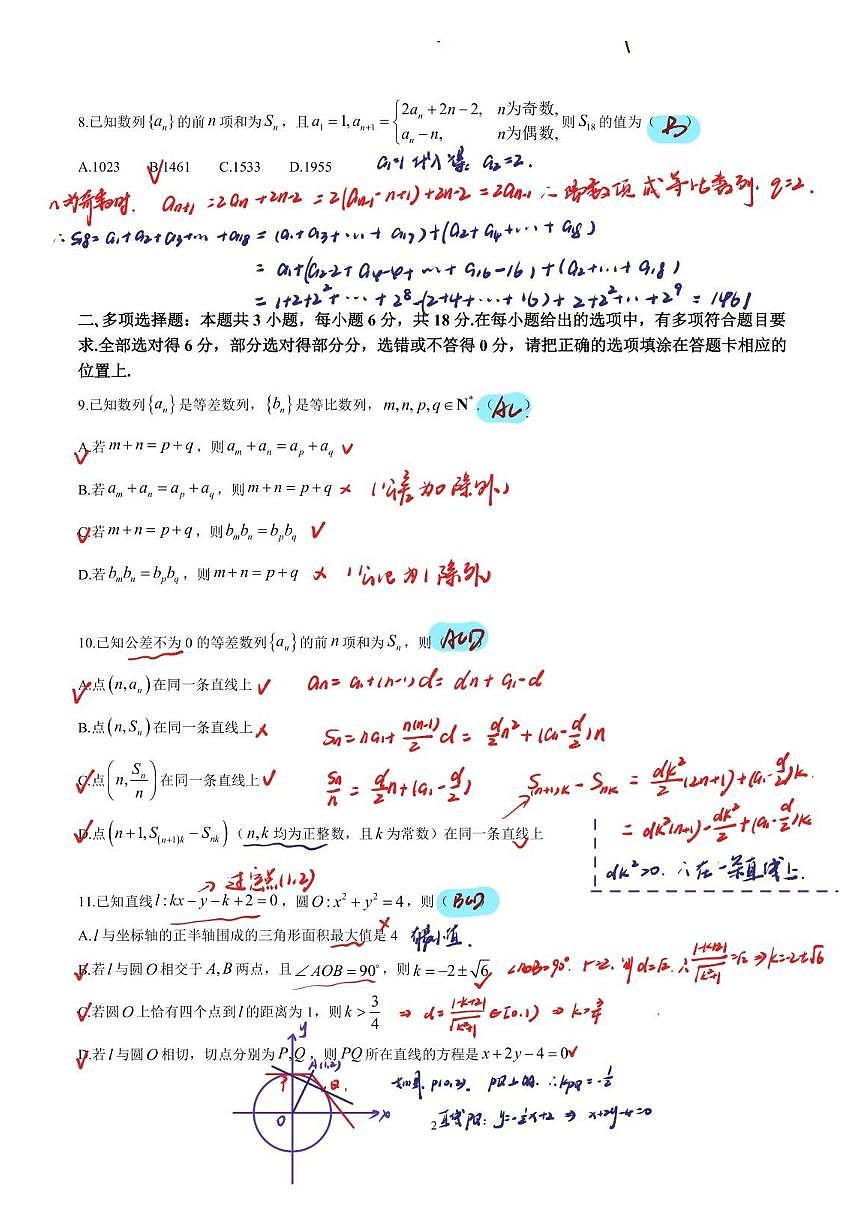 8.已知数列{aₙ}的前n项和为Sₙ，且a₁=1,aₙ₊₁={2aₙ+2n-2, n为奇数, aₙ-n, n为偶数,则S₁₈的值为( B )
A.1023 B.1461 C.1533 D.1955 a₁=1代入得: a₂=2.
n为奇数时. aₙ₊₁=2aₙ+2n-2=2(aₙ₋₁-n+1)+2n-2=2aₙ₋₁ ∴偶数项成等比数列. q=2.
∴S₁₈=a₁+a₂+a₃+…+a₁₈=(a₁+a₃+…+a₁₇)+(a₂+a₄+…+a₁₈)
=a₁+(a₂-2+a₄-4+…+a₁₆-16)+(a₂+…+a₁₈)
=1+2+2²+…+2⁸-(2+4+…+16)+2+2²+…+2⁹=1461
二、多项选择题：本题共3小题，每小题6分，共18分.在每小题给出的选项中，有多项符合题目要
求.全部选对得6分，部分选对得部分分，选错或不答得0分，请把正确的选项填涂在答题卡相应的
位置上.
9.已知数列{aₙ}是等差数列，{bₙ}是等比数列，m,n,p,q∈N*.( AC )
A.若m+n=p+q，则aₘ+aₙ=aₚ+a_q ✓
B.若aₘ+aₙ=aₚ+a_q，则m+n=p+q × (公差为0除外)
C.若m+n=p+q，则bₘbₙ=bₚb_q ✓
D.若bₘbₙ=bₚb_q，则m+n=p+q × (公比为1除外)
10.已知公差不为0的等差数列{aₙ}的前n项和为Sₙ，则( ACD )
A.点(n,aₙ)在同一条直线上 ✓ aₙ=a₁+(n-1)d=dn+a₁-d
B.点(n,Sₙ)在同一条直线上 × Sₙ=na₁+n(n-1)/2 d=d/2 n²+(a₁-d/2)n
C.点(n,Sₙ/n)在同一条直线上 ✓ Sₙ/n=d/2 n+(a₁-d/2) S₍ₙ₊₁₎ₖ-Sₙₖ=dk²/2(2n+1)+(a₁-d/2)k.
D.点(n+1,S₍ₙ₊₁₎ₖ-Sₙₖ)（n,k均为正整数，且k为常数）在同一条直线上 ✓ =dk²(n+1)-dk²/2+(a₁-d/2)k
dk²>0. ∴在一条直线上.
→过定点(1,2)
11.已知直线l:kx-y-k+2=0，圆O:x²+y²=4，则( BCD )
A.l与坐标轴的正半轴围成的三角形面积最大值是4 × 有最小值.
B.若l与圆O相交于A,B两点，且∠AOB=90°，则k=-2±√6 ✓ ∠AOB=90°. r=2. 则d=√2. ∴|-k+2|/√(k²+1)=√2⇒k=-2±√6
C.若圆O上恰有四个点到l的距离为1，则k>3/4 ⇒d=|-k+2|/√(k²+1)∈[0,1)⇒k>3/4
D.若l与圆O相切，切点分别为P,Q，则PQ所在直线的方程是x+2y-4=0 ✓
y A(1,2) P Q O x
P(0,2). ∴k_PQ=-1/2
直线PQ: y=-1/2x+2⇒x+2y-4=0
2